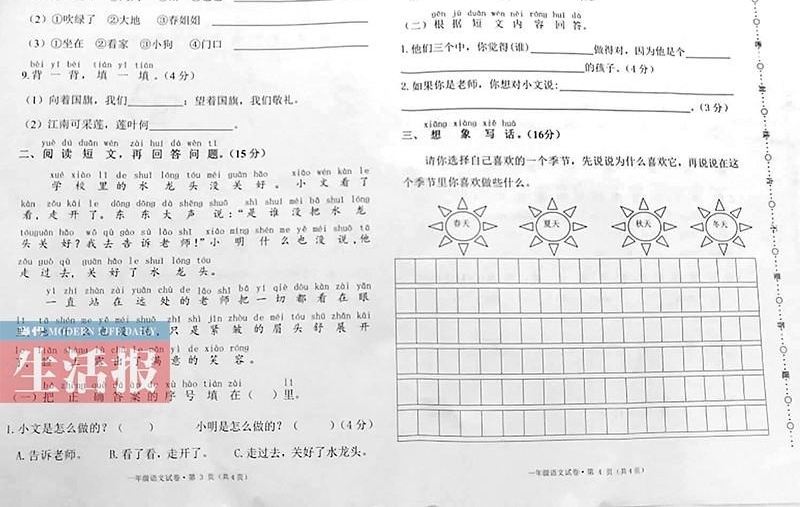 (2)①吹绿了 ②大地 ③春姐姐
(3)①坐在 ②看家 ③小狗 ④门口
bèi yī bèi tián yī tián
9.背一背，填一填。(4分)
(1)向着国旗，我们________；望着国旗，我们敬礼。
(2)江南可采莲，莲叶何____________。
yuè dú duǎn wén zài huí dá wèn tí
二、阅读短文，再回答问题。(15分)
xué xiào lǐ de shuǐ lóng tóu méi guān hǎo xiǎo wén kàn le
学校里的水龙头没关好。小文看了
kàn zǒu kāi le dōng dōng dà shēng shuō shì shuí méi bǎ shuǐ lóng
看，走开了。东东大声说：“是谁没把水龙
tóu guān hǎo wǒ qù gào sù lǎo shī xiǎo míng shén me yě méi shuō tā
头关好？我去告诉老师！”小明什么也没说，他
zǒu guò qù guān hǎo le shuǐ lóng tóu
走过去，关好了水龙头。
yì zhí zhàn zài yuǎn chù de lǎo shī bǎ yí qiè dōu kàn zài yǎn
一直站在远处的老师把一切都看在眼
lǐ tā shén me yě méi shuō zhǐ shì jǐn zhòu de méi tóu shū zhǎn kāi
只是紧皱的眉头舒展开
意的笑容。
(一)把正确答案的序号填在( )里。
1.小文是怎么做的？( ) 小明是怎么做的？( )(4分)
A.告诉老师。 B.看了看，走开了。 C.走过去，关好了水龙头。
一年级语文试卷·第 3 页(共4页)
MODERN LIFE DAILY
生活报
gēn jù duǎn wén nèi róng huí dá
(二)根据短文内容回答。
1.他们三个中，你觉得(谁)__________做得对，因为他是个________
____________________________的孩子。(4分)
2.如果你是老师，你想对小文说：____________________________
____________________________________________。(3分)
xiǎng xiàng xiě huà
三、想象写话。(16分)
请你选择自己喜欢的一个季节，先说说为什么喜欢它，再说说在这
个季节里你喜欢做些什么。
春天 夏天 秋天 冬天
一年级语文试卷·第 4 页(共4页)